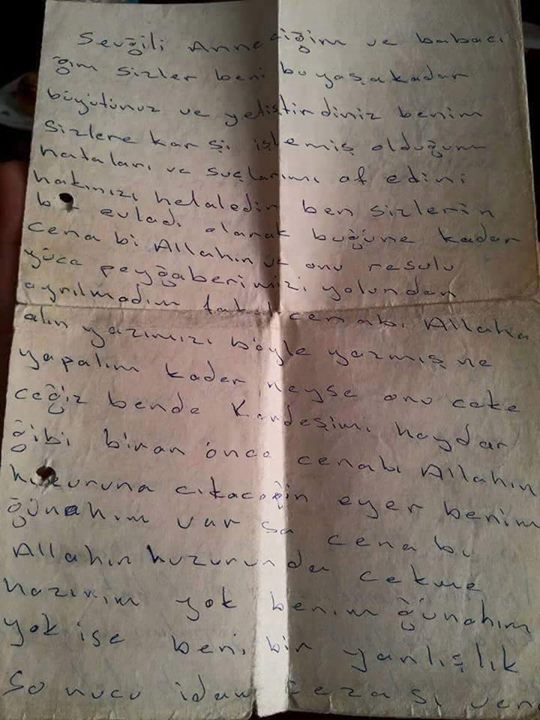 Sevğili Anneciğim ve babacı
ğım sizler beni bu yaşakadar
büyütünüz ve yetiştirdiniz benim
sizlere karşı işlemiş olduğum
hataları ve suçlarımı af edini
hakınızı helaledin ben sizlerin
bir evladı olarak buğüne kadar
cena bi Allahın ve onu resulu
yüca peyğaberimizi yolundan
ayrılmadım cenabı Allaha
alın yazımızı böyle yazmış ne
yapalım kader neyse onu ceke
ceğiz bende Kardeşimı haydar
ğibi biran önce cenabı Allahın
huzuruna cıkacağın eyer benim
ğünahım var sa cena bı
Allahın huzurunda cekme
hazırım yok benim ğünahım
yok ise beni bir yanlışlık
so nucu idam ceza sı ver